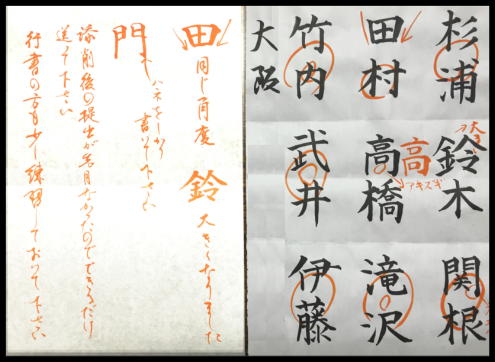 杉浦
鈴木
大きく
関根
田村
高橋
高
アキスギ
滝沢
竹内
武井
伊藤
大阪
田 同じ角度
鈴 大きくなりました
門 ハネをしっかり
書いて下さい
添削後の提出が先月なかったのでできるだけ
送って下さい
行書の方も少し練習しておいて下さい